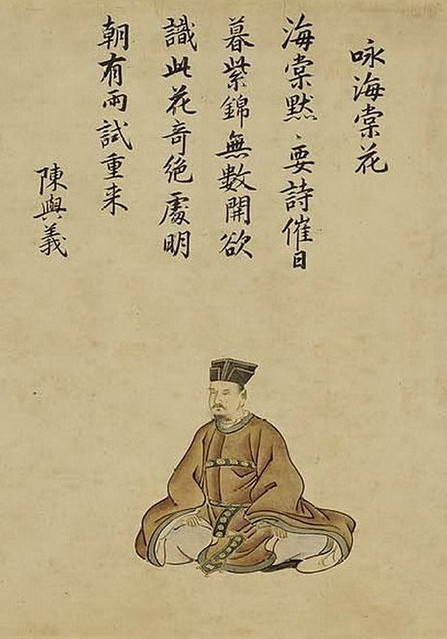 咏海棠花
海棠默〻要詩催日
暮紫錦無數開欲
識此花奇絶處明
朝有雨試重来
陳與義